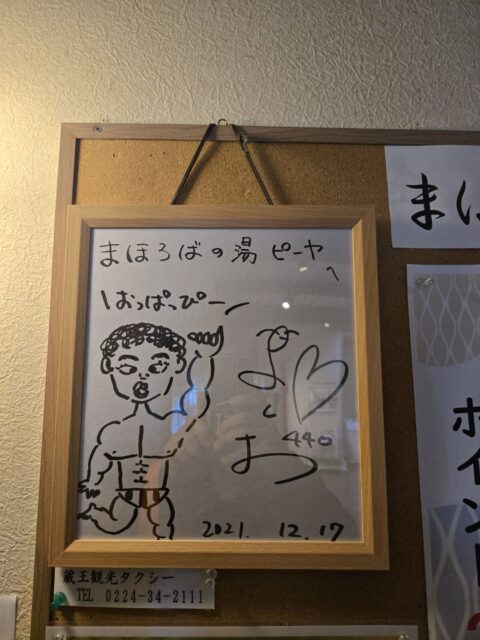 まほろばの湯 ピーヤへ
\おっぱっぴー/
よしお
440
2021. 12.17
蔵王観光タクシー
TEL 0224-34-2111
ま
ポイント